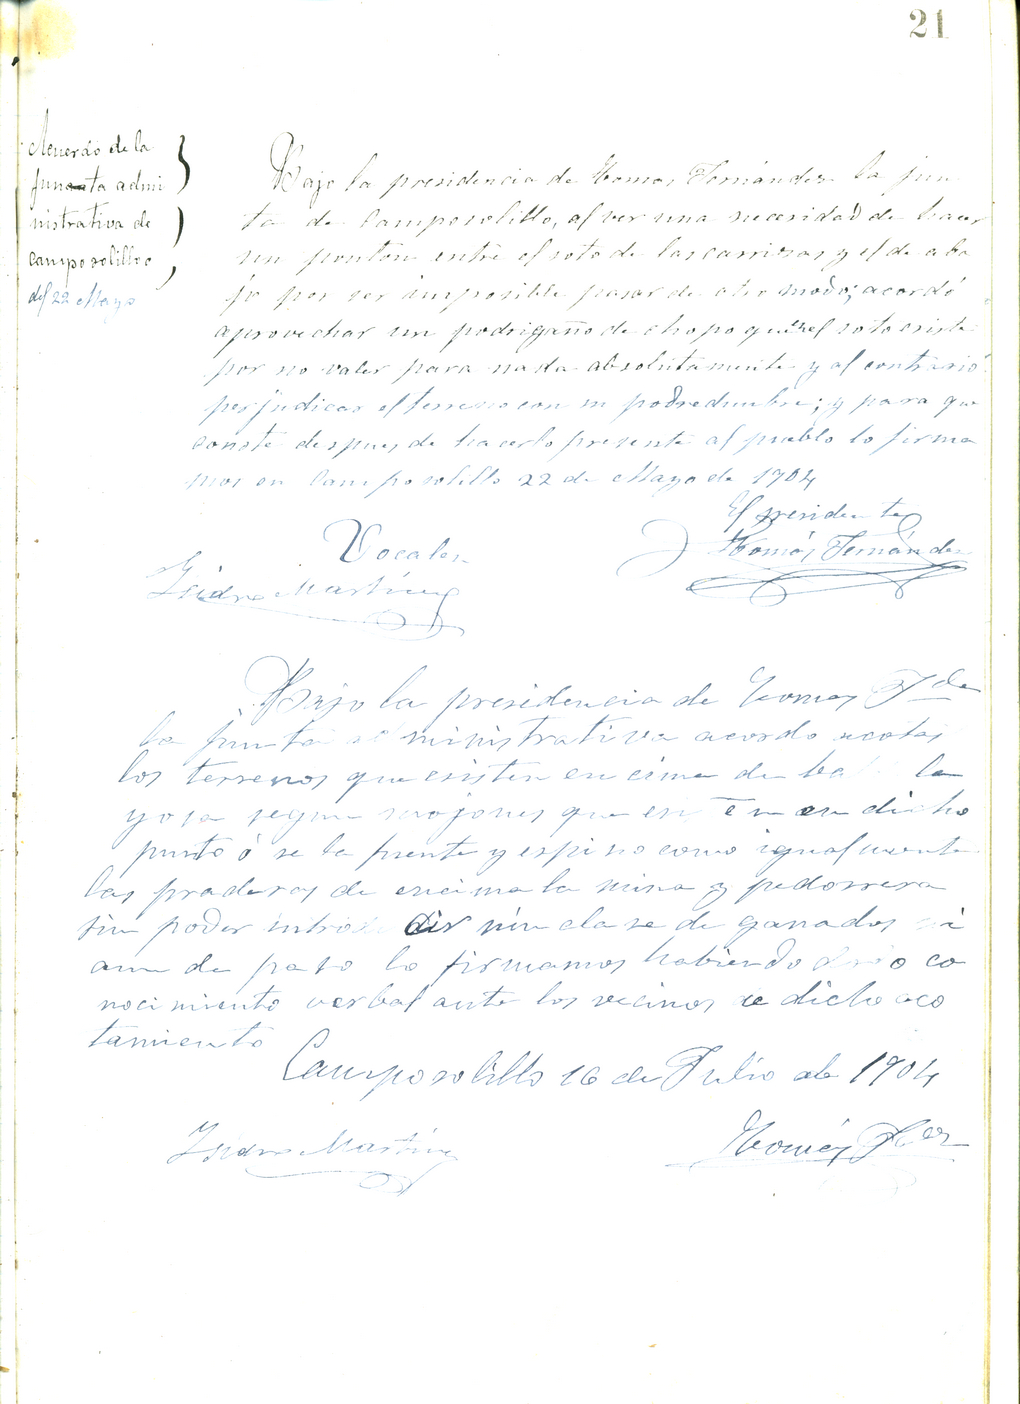 21
Acuerdo de la
junata admi
nistrativa de
Camposolillo
del 22 Mayo
Bajo la presidencia de Tomas Fernández la jun
ta de Camposolillo, al ver una necesidad de hacer
un pontón entre el soto de las carrizas y el de aba
jo por ser imposible pasar de otro modo; acordó
aprovechar un podrigaño de chopo que en el soto existe
por no valer para nada absolutamente y al contrario
perjudicar el terreno con su podredumbre; y para que
conste despues de hacerlo presente al pueblo lo firma
mos en Camposolillo 22 de Mayo de 1904
El presidente
Vocales
Tomás Fernández
Isidro Martínez
Bajo la presidencia de Tomas Fdez
la junta administrativa acordo acotar
los terrenos que existen encima de la
yosa segun mojones que en dicho
punto ó sea la fuente y espino como igualmente
las praderas de encima la mina y pedorrera
sin poder introducir nin clase de ganados ni
aun de paso lo firmamos habiendo dado co
nocimiento verbal ante los vecinos de dicho aco
tamiento
Camposolillo 16 de Julio de 1904
Isidro Martínez
Tomás Fdez